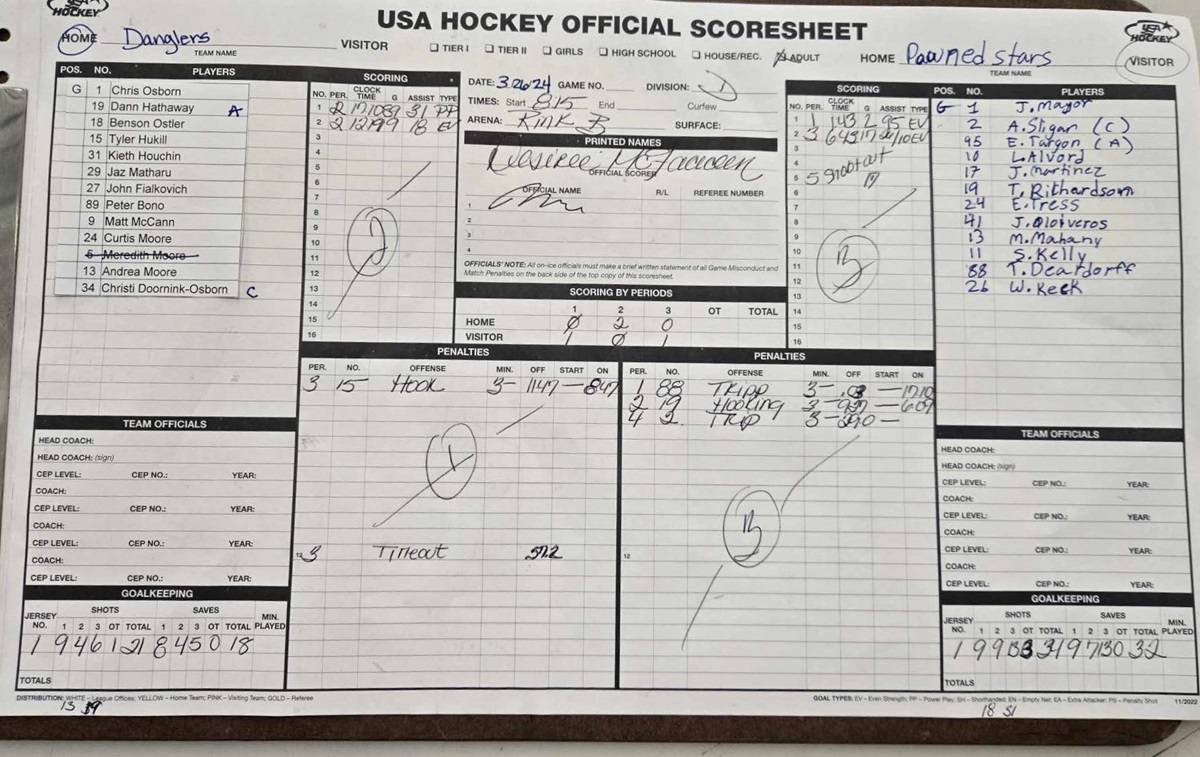 USA HOCKEY
USA HOCKEY OFFICIAL SCORESHEET
USA HOCKEY
HOME Danglers
TEAM NAME
VISITOR
TIER I TIER II GIRLS HIGH SCHOOL HOUSE/REC. ADULT
HOME Pawned stars
TEAM NAME
VISITOR
POS. NO. PLAYERS
G 1 Chris Osborn
19 Dann Hathaway A
18 Benson Ostler
15 Tyler Hukill
31 Kieth Houchin
29 Jaz Matharu
27 John Fialkovich
89 Peter Bono
9 Matt McCann
24 Curtis Moore
6 Meredith Moore
13 Andrea Moore
34 Christi Doornink-Osborn C
SCORING
NO. PER. CLOCK TIME G ASSIST TYPE
1 2 1710 89 31 PP
2 2 18 EV
3
4
5
6
7
8
9
10
11
12
13
14
15
16
2
DATE: 3 26 24 GAME NO. DIVISION: D
TIMES: Start 815 End Curfew
ARENA: Rink B SURFACE:
PRINTED NAMES
Desiree
OFFICIAL SCORER
OFFICIAL NAME R/L REFEREE NUMBER
1
2
3
4
OFFICIALS' NOTE: All on-ice officials must make a brief written statement of all Game Misconduct and
Match Penalties on the back side of the top copy of this scoresheet.
SCORING BY PERIODS
1 2 3 OT TOTAL
HOME 0 2 0
VISITOR 1 0 1
SCORING
NO. PER. CLOCK TIME G ASSIST TYPE
1 1 143 2 95 EV
2 3 EV
3
4
5 Shootout
6
7
8
9
10
11
12
13
14
15
16
POS. NO. PLAYERS
G 1 J. Mayor
2 A. Sligar (C)
95 E. Turgon (A)
10 L. Alvord
17 J. Martinez
19 T. Richardsom
24 E. Tress
41 J. Oloiveros
13 M. Mahany
11 S. Kelly
88 T. Deardorff
26 W. Keck
PENALTIES
PER. NO. OFFENSE MIN. OFF START ON
3 15 Hook 3 1147 847
1
12 3 Timeout 57.2
PENALTIES
PER. NO. OFFENSE MIN. OFF START ON
1 88 TRIPP 3 1710
2 19 Hooking 3 607
4 2 TRIP 3
12
TEAM OFFICIALS
HEAD COACH:
HEAD COACH: (sign)
CEP LEVEL: CEP NO.: YEAR:
COACH:
CEP LEVEL: CEP NO.: YEAR:
COACH:
CEP LEVEL: CEP NO.: YEAR:
COACH:
CEP LEVEL: CEP NO.: YEAR:
TEAM OFFICIALS
HEAD COACH:
HEAD COACH: (sign)
CEP LEVEL: CEP NO.: YEAR:
COACH:
CEP LEVEL: CEP NO.: YEAR:
COACH:
CEP LEVEL: CEP NO.: YEAR:
COACH:
CEP LEVEL: CEP NO.: YEAR:
GOALKEEPING
JERSEY NO. SHOTS 1 2 3 OT TOTAL SAVES 1 2 3 OT TOTAL MIN. PLAYED
1 9 4 6 1 21 8 4 5 0 18
TOTALS
GOALKEEPING
JERSEY NO. SHOTS 1 2 3 OT TOTAL SAVES 1 2 3 OT TOTAL MIN. PLAYED
1 9 9 13 3 34 9 7 13 0 32
TOTALS
DISTRIBUTION: WHITE – League Offices; YELLOW – Home Team; PINK – Visiting Team; GOLD – Referee
GOAL TYPES: EV – Even Strength; PP – Power Play; SH – Shorthanded; EN – Empty Net; EA – Extra Attacker; PS – Penalty Shot 11/2022
13
18 31